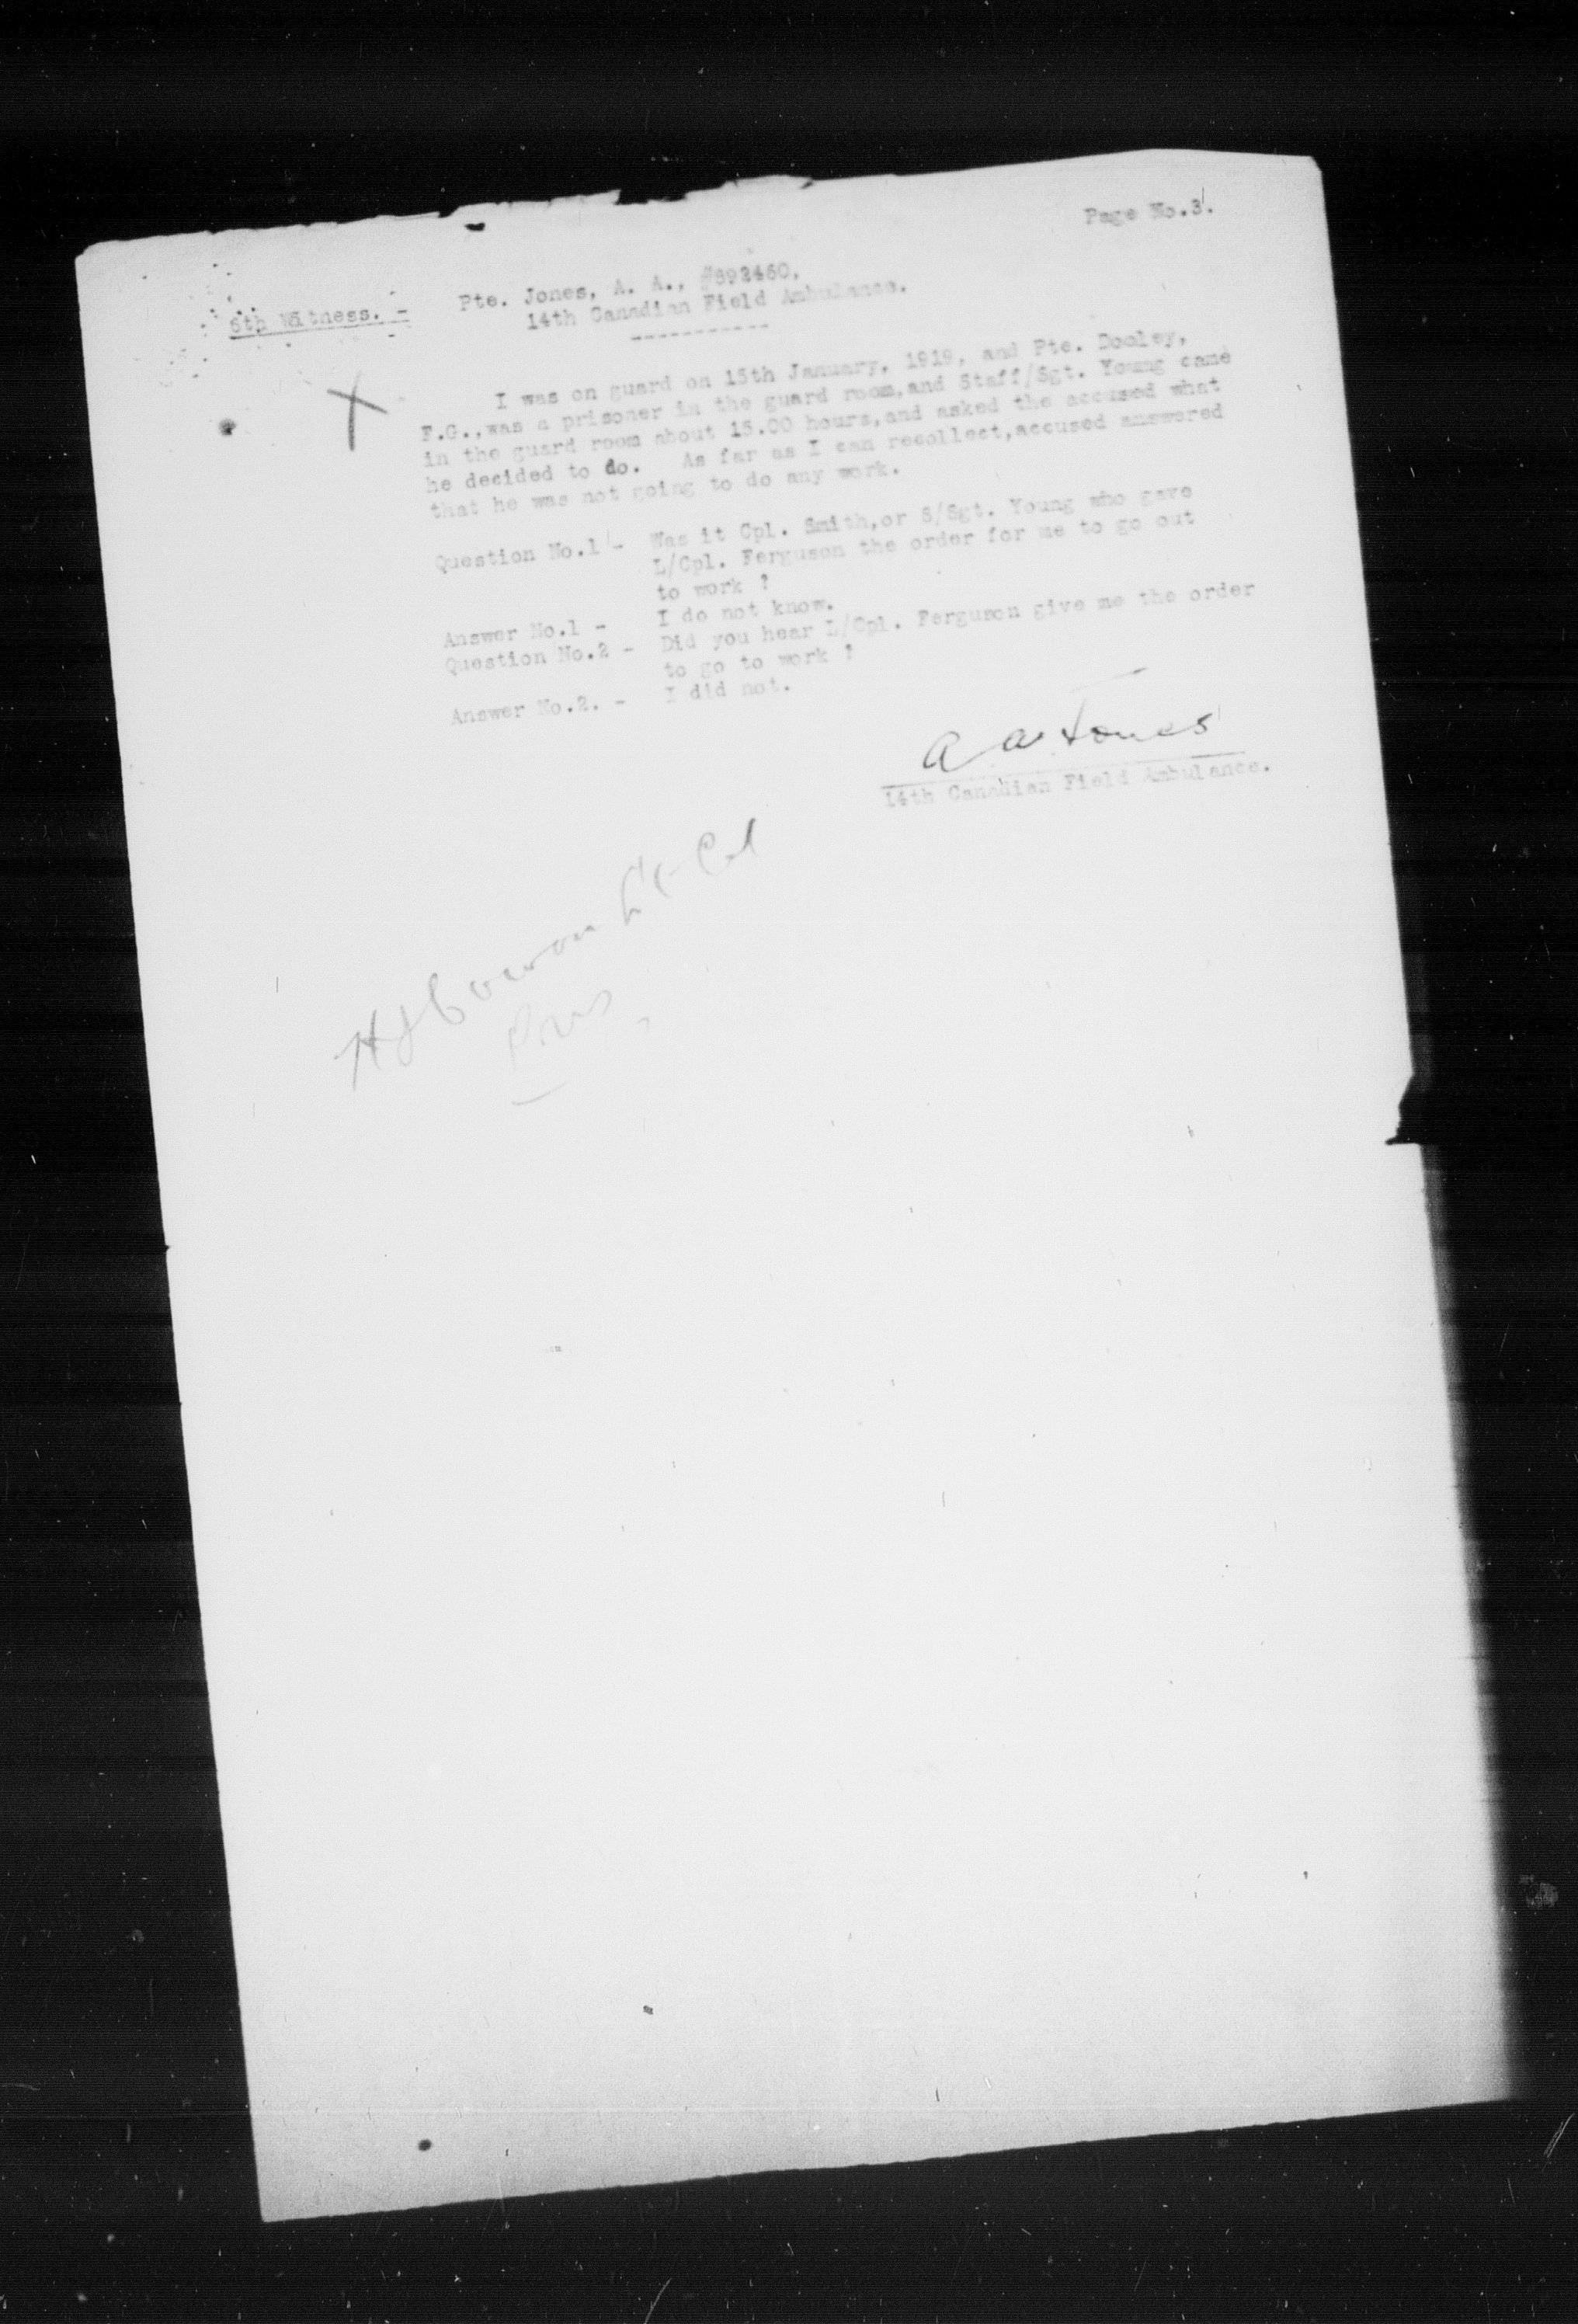 Page No.3.
5th Witness. - Pte. Jones, A. A., #892460.
14th Canadian Field Ambulance.
-----------
I was on guard on 15th January, 1919, and Pte. Dooley,
F.G.,was a prisoner in the guard room,and Staff/Sgt. Young came
in the guard room about 15.00 hours,and asked the accused what
he decided to do. As far as I can recollect,accused answered
that he was not going to do any work.
Question No.1 - Was it Cpl. Smith,or S/Sgt. Young who gave
L/Cpl. Ferguson the order for me to go out
to work ?
Answer No.1 - I do not know.
Question No.2 - Did you hear L/Cpl. Ferguson give me the order
to go to work ?
Answer No.2. - I did not.
A A Jones
14th Canadian Field Ambulance.
Lt-Col